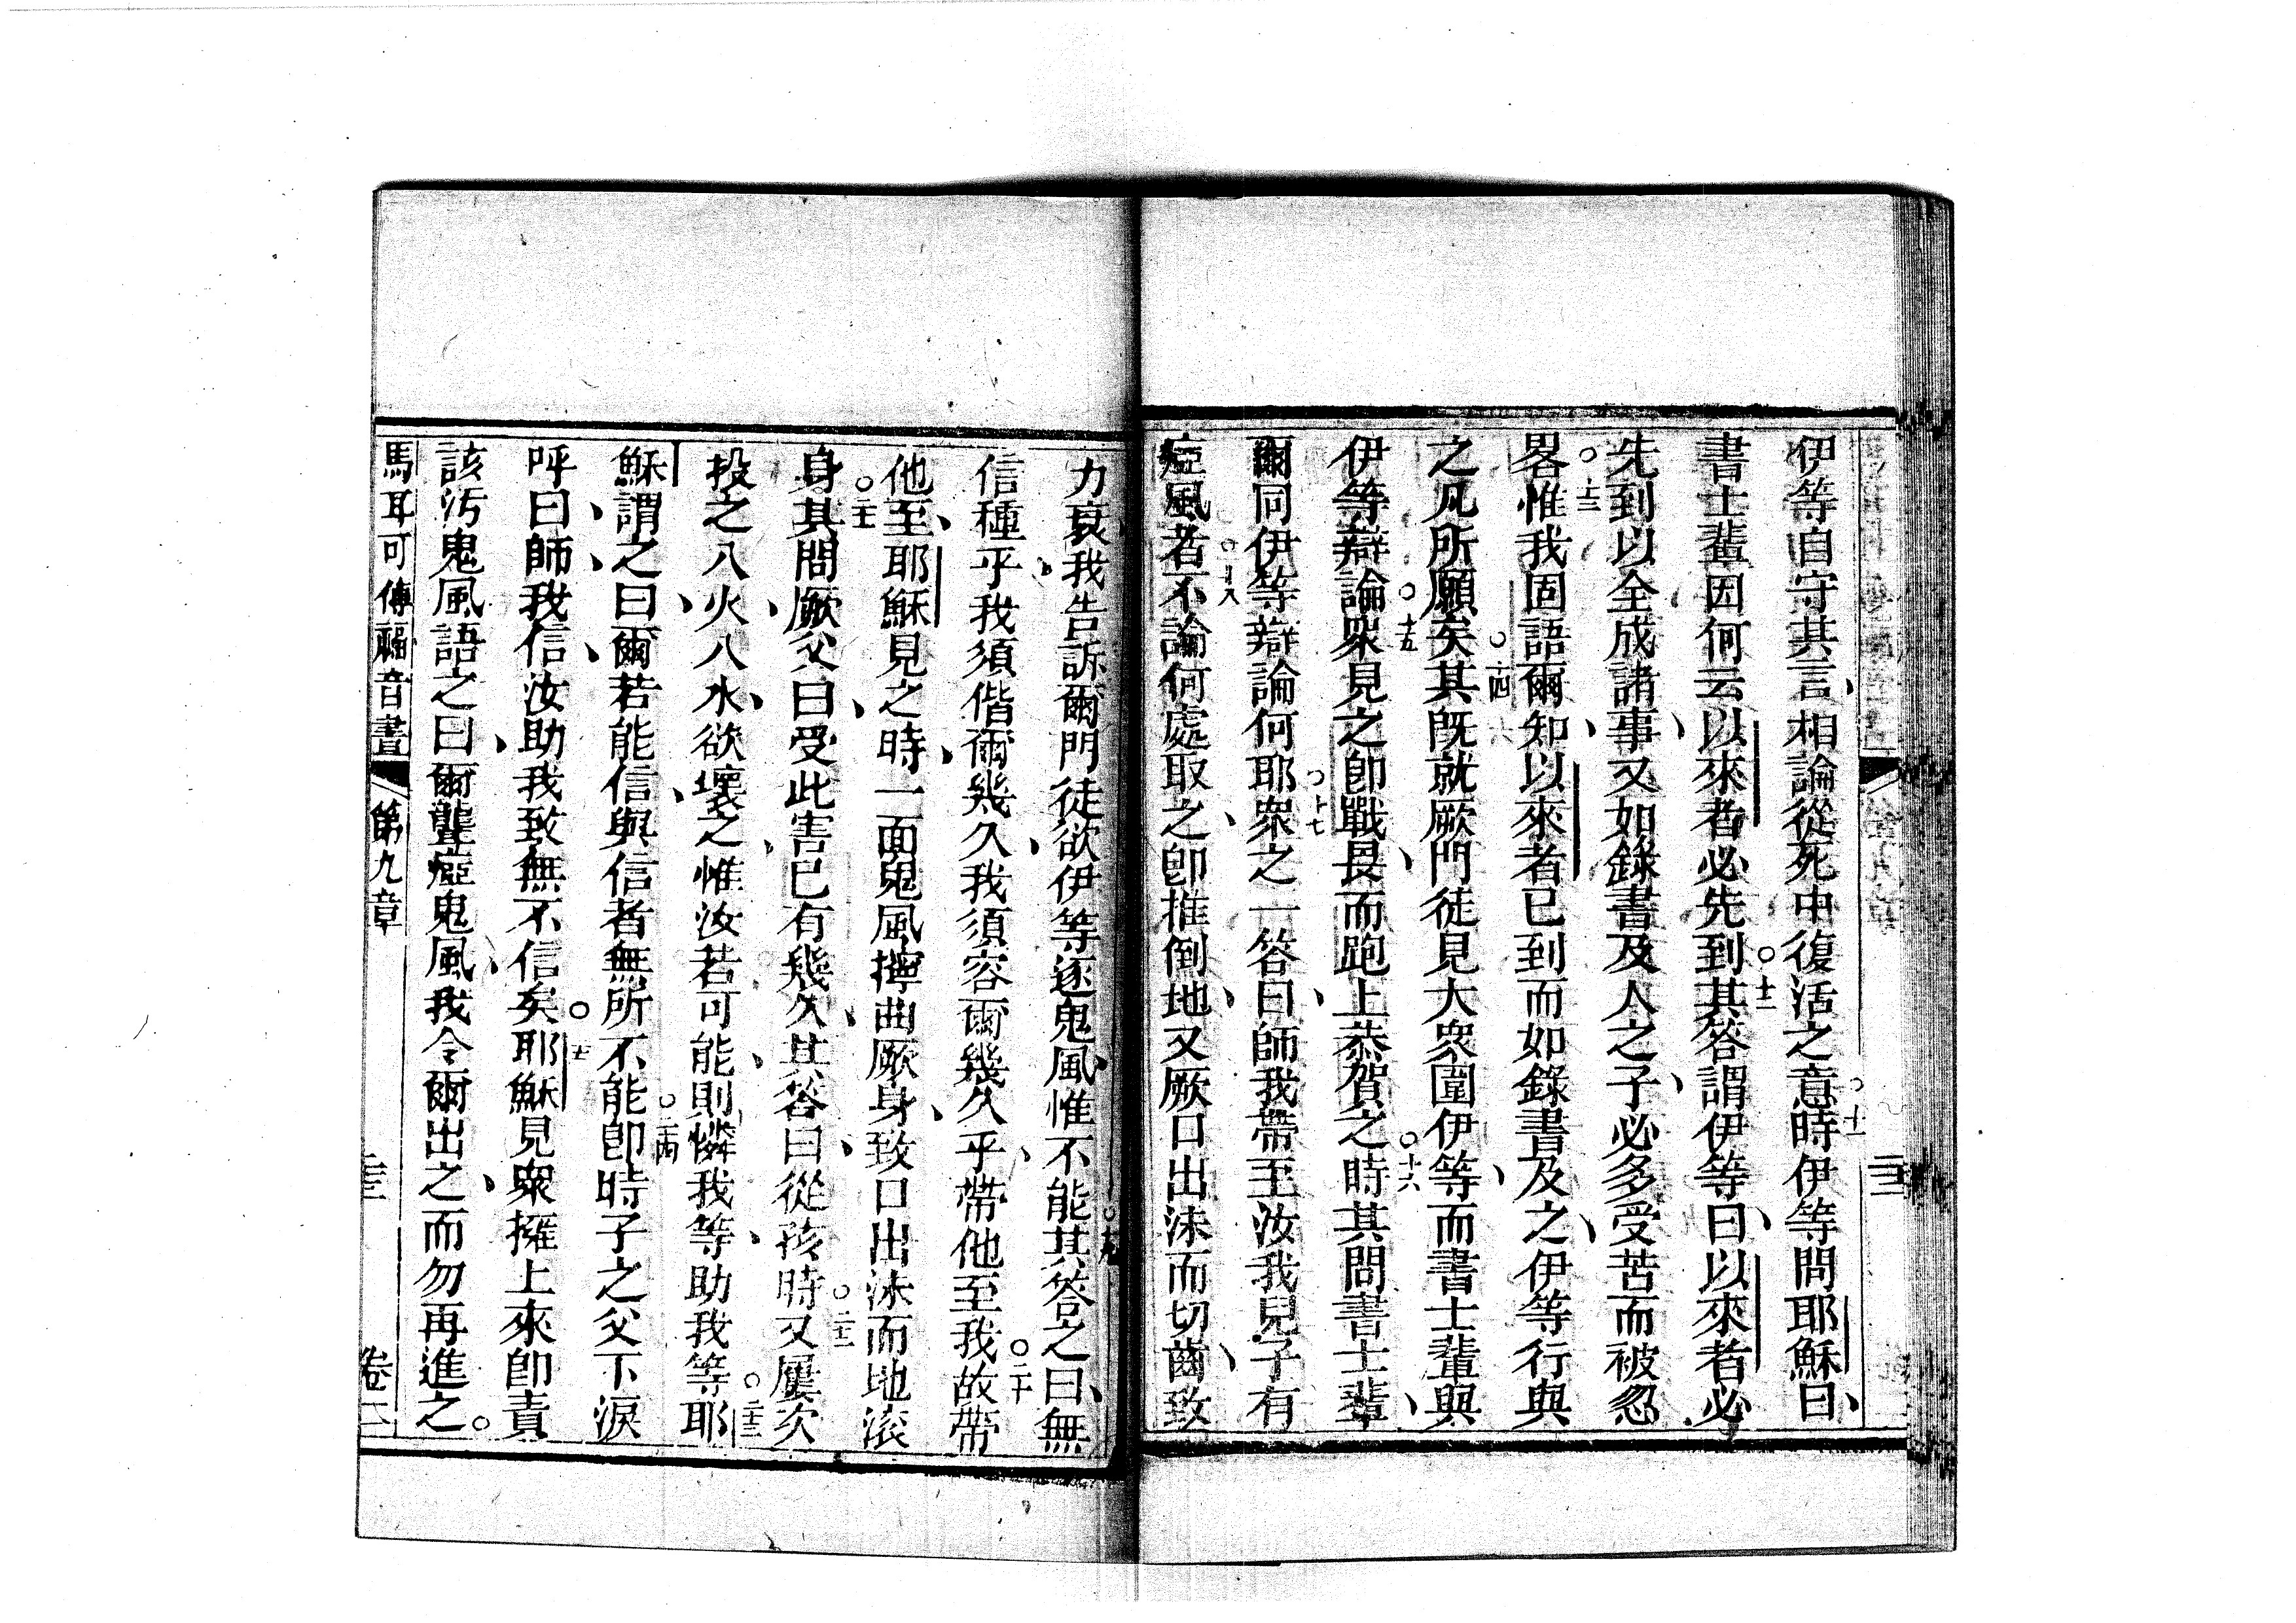 伊等自守其言、相論從死中復活之意○十一時伊等問耶穌曰、
書士輩因何云以來者必先到○十二其答謂伊等曰、以來者必
先到以全成諸事、又如錄書及人之子、必多受苦而被忽
畧○十三惟我固語爾知、以來者已到而如錄書及之、伊等行與
之凡所願矣○十四其既就厥門徒見大衆圍伊等、而書士輩與
伊等辯論○十五衆見之卽戰畏、而跑上恭賀之○十六時其問書士輩、
爾同伊等辯論何耶○十七衆之一答曰、師我帶至汝我兒子有
瘂風者○十八不論何處取之、卽推倒地、又厥口出沫而切齒、致
力衰、我告訴爾門徒欲伊等逐鬼風、惟不能○十九其答之曰、無
信種乎、我須偕爾幾久、我須容爾幾久乎、帶他至我○二十故帶
他至、耶穌見之時、一面鬼風擰曲厥身、致口出沫而地滾
身○二十一其問厥父曰、受此害已有幾久、其答曰、從孩時○二十二又屢次
投之入火、入水、欲壞之、惟汝若可能、則憐我等、助我等○二十三耶
穌謂之曰、爾若能信、與信者無所不能○二十四卽時子之父下淚
呼曰、師、我信、汝助我致無不信矣○二十五耶穌見衆擁上來卽責
該污鬼風語之曰、爾聾瘂鬼風、我令爾出之、而勿再進之。
馬耳可傳福音書 第九章 卷二